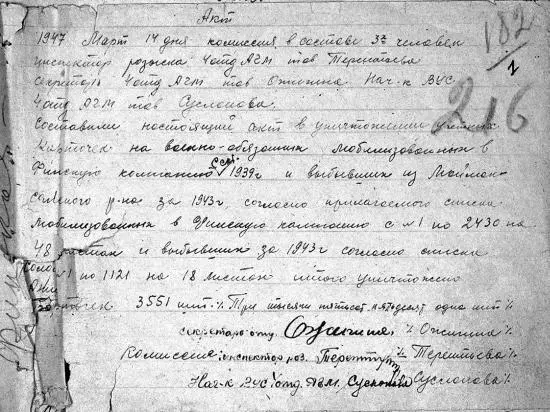 Акт
182
1947 Март 14 дня комиссия в составе 3х человек
инспектор розыска 4 отд АГМ тов Терентьева
Секретарь 4 отд АГМ тов Ожигина Нач-к ВУС
4 отд АГМ тов Суслопова.
216
Составили настоящий акт в уничтожении учетных
Карточек на военно-обязанных мобилизованных в
Финскую компанию 1939г и выбывших из
р-на за 1943г, согласно прилагаемого списка
мобилизованных в Финскую компанию с №1 по 2430 на
48 листах и выбывших за 1943г согласно списка
№1 по 1121 на 18 листах итого уничтожено
карточек 3551 шт % Три тысячи пятьсот пятьдесят одна шт %
секретарь отд. % Ожигина %
Комиссия: инспектор роз. % Терентьева %
Нач-к ВУС 4 отд. АГМ. Суслопова %